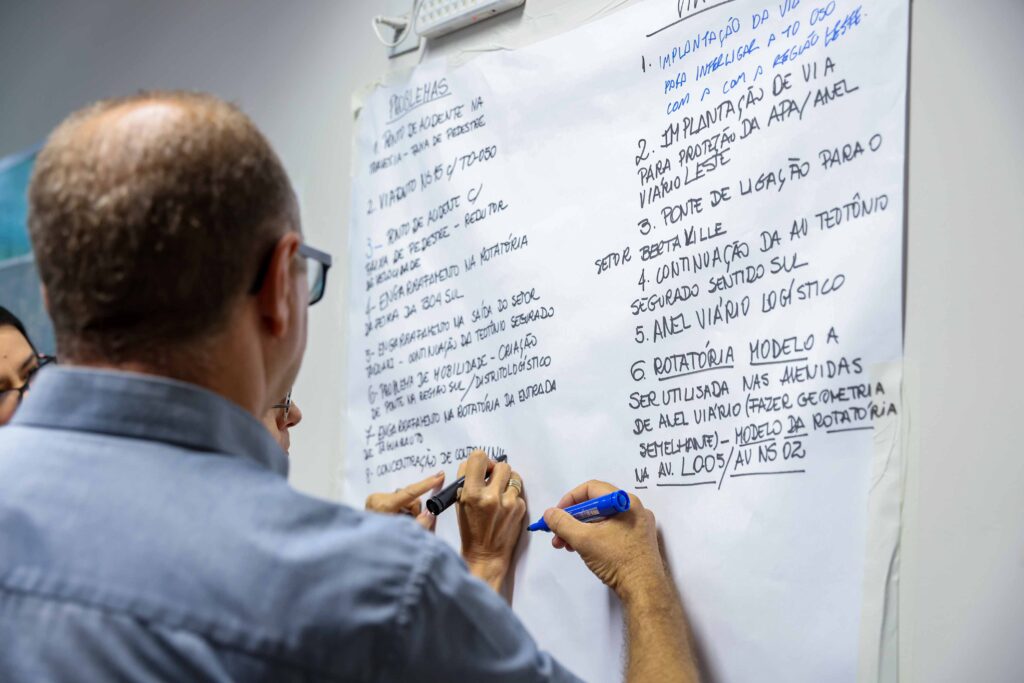 PROBLEMAS
1. PONTO DE ACIDENTE NA
TRAVESSIA - FAIXA DE PEDESTRE
2. VIADUTO NS 15 C/ TO-050
3 - PONTO DE ACIDENT C/
FAIXA DE PEDESTRE - REDUTOR
DE VELOCIDADE
4 - ENGARRAFAMENTO NA ROTATÓRIA
DA FEIRA DA 1304 SUL
5 - ENGARRAFAMENTO NA SAÍDA DO SETOR
TAQUARI - CONTINUAÇÃO DA TEOTÔNIO SEGURADO
6 - PROBLEMA DE MOBILIDADE - CRIAÇÃO
DE PONTE NA REGIÃO SUL / DISTRITO LOGÍSTICO
7 - ENGARRAFAMENTO NA ROTATÓRIA DA ENTRADA
DE
8 - CONCENTRAÇÃO DE
1. IMPLANTAÇÃO DA VIA
PARA INTERLIGAR A TO 050
COM A COM A REGIÃO LESTE.
2. IMPLANTAÇÃO DE VIA
PARA PROTEÇÃO DA APA/ANEL
VIÁRIO LESTE
3. PONTE DE LIGAÇÃO PARA O
SETOR BERTAVILLE
4. CONTINUAÇÃO DA AV TEOTÔNIO
SEGURADO SENTIDO SUL
5. ANEL VIÁRIO LOGÍSTICO
6. ROTATÓRIA MODELO A
SER UTILISADA NAS AVENIDAS
DE ANEL VIÁRIO (FAZER GEOMETRIA
SEMELHANTE) - MODELO DA ROTATÓRIA
NA AV. LO05 / AV NS 02